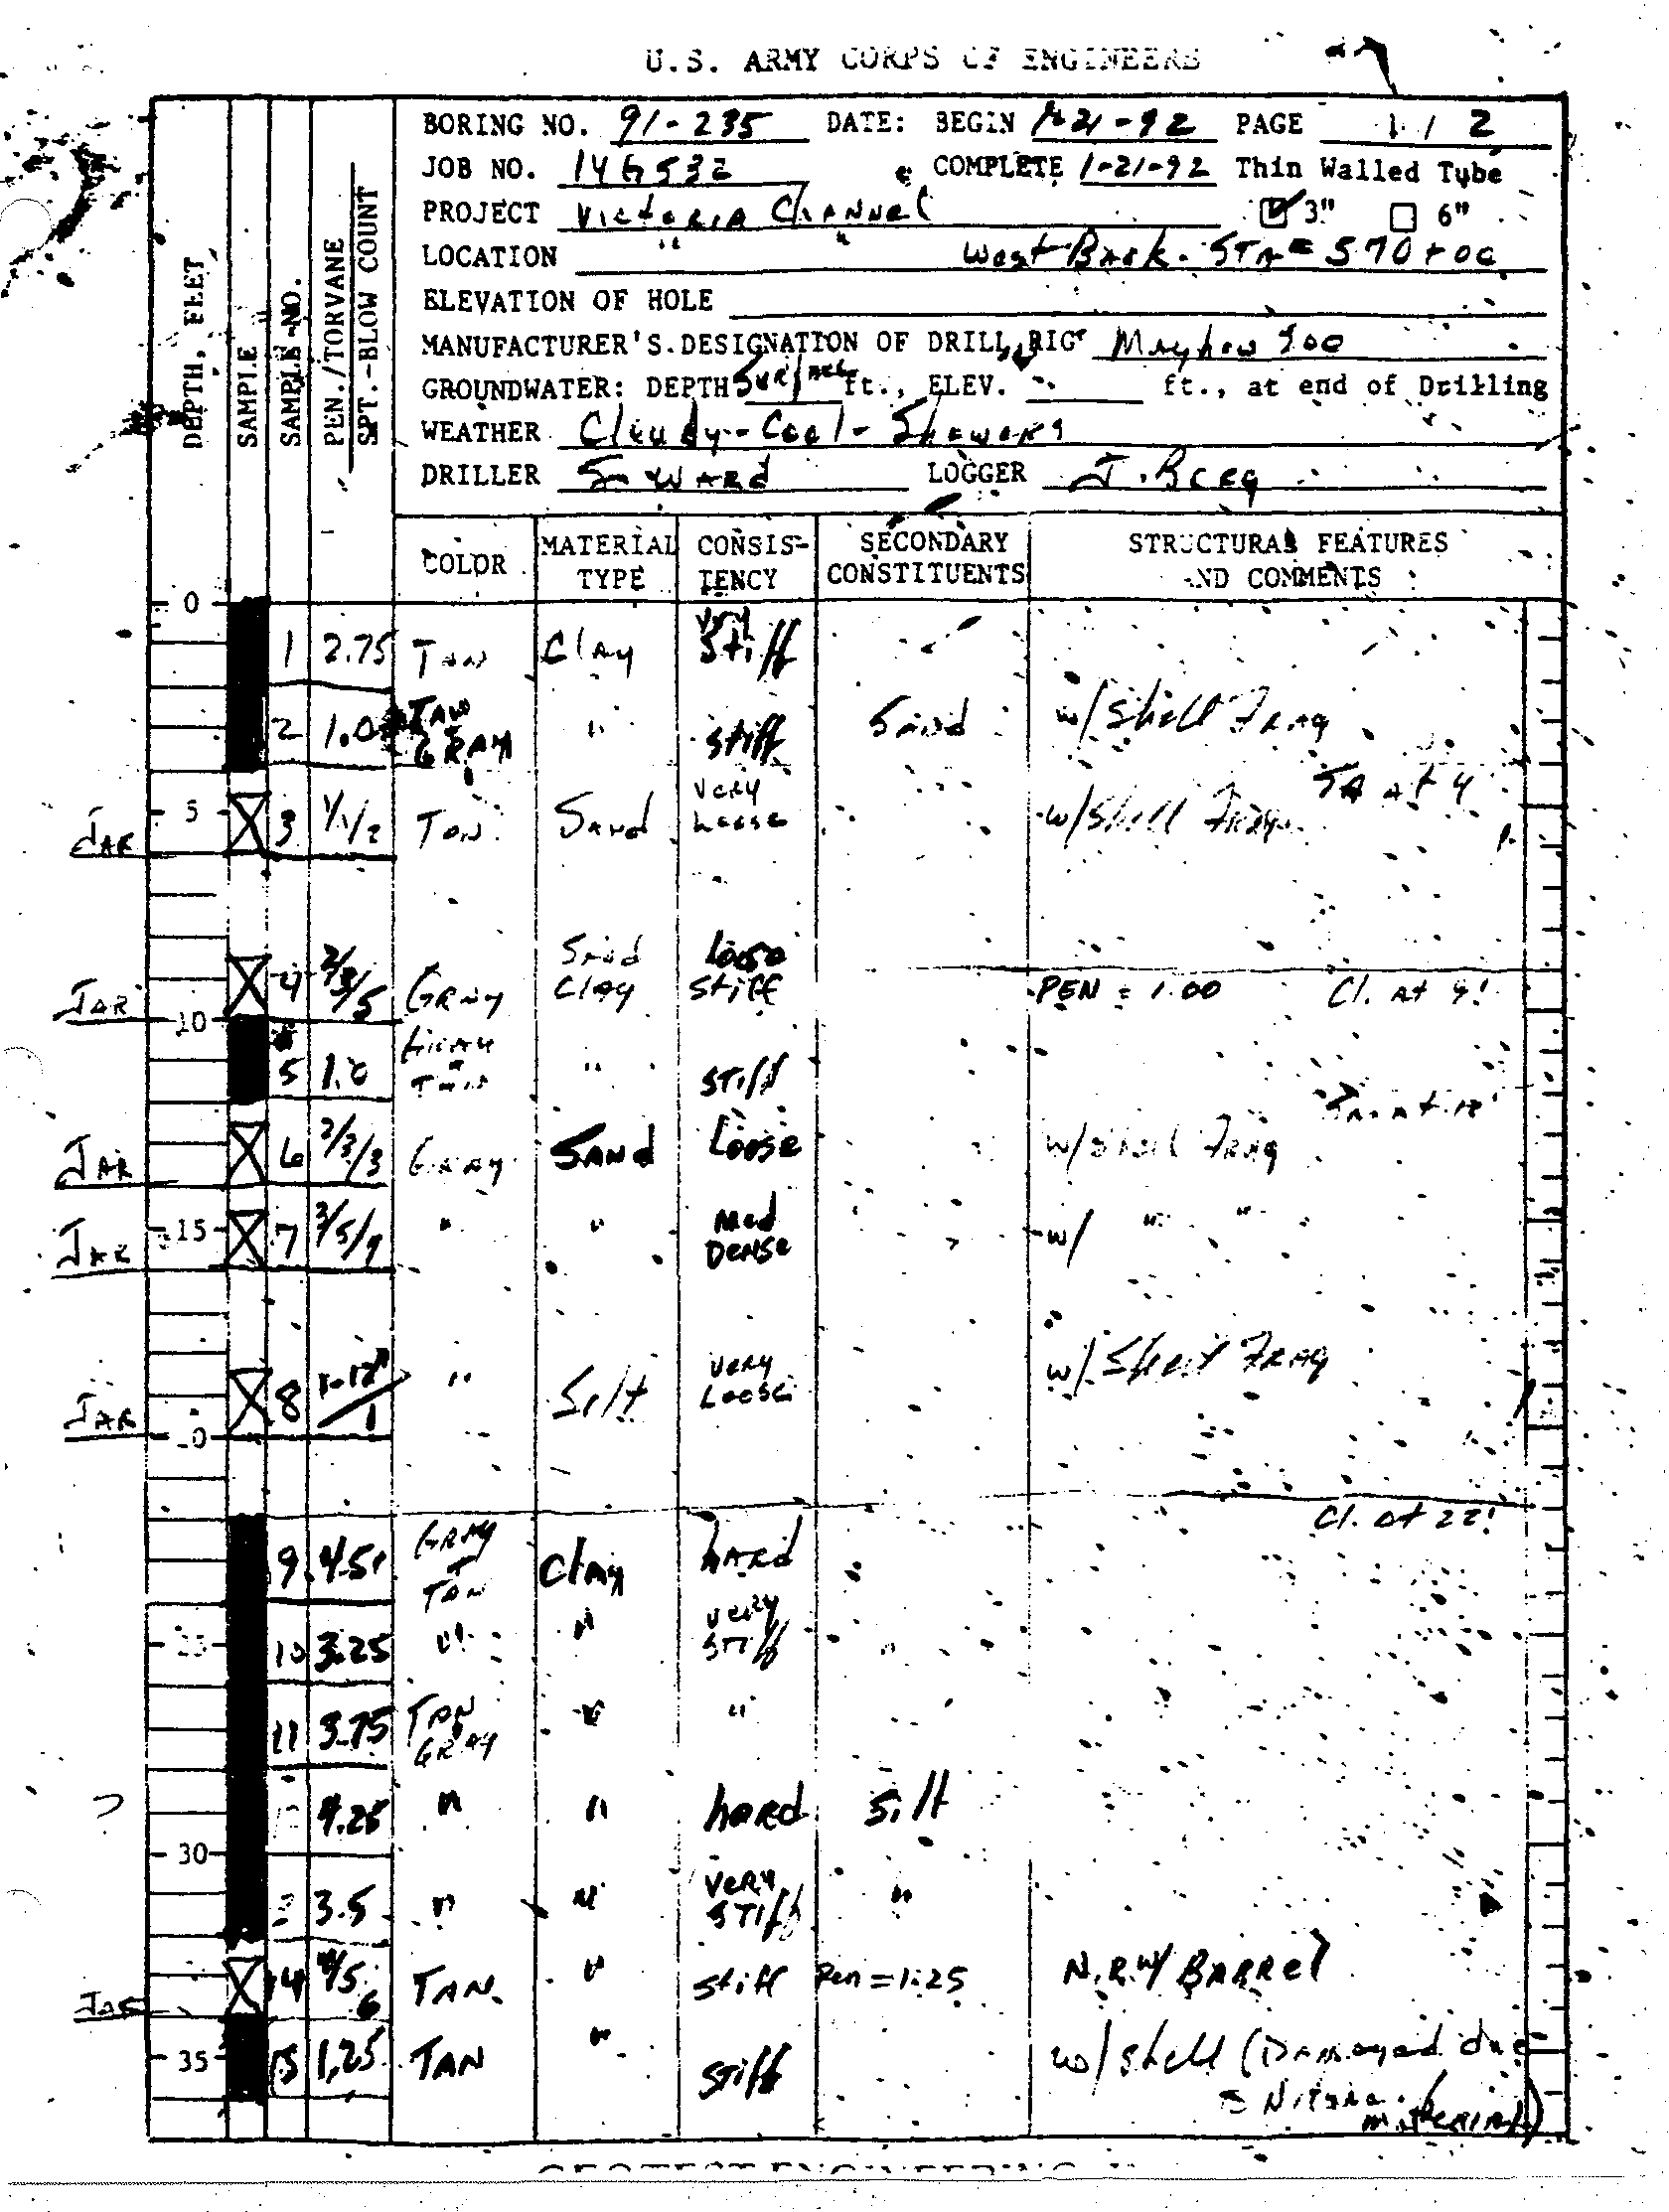 U.S. ARMY CORPS OF ENGINEERS
BORING NO. 91-235 DATE: BEGIN 1-21-92 PAGE 1 / 2
JOB NO. 14G532 COMPLETE 1-21-92 Thin Walled Tube
PROJECT Victoria Channel 3" 6"
LOCATION " " West Bank. STA = 570+00
ELEVATION OF HOLE
MANUFACTURER'S DESIGNATION OF DRILL RIG Mayhew
GROUNDWATER: DEPTH Surface ft., ELEV. ft., at end of Drilling
WEATHER Cloudy-Cool-Showers
DRILLER S. Ward LOGGER J.
DEPTH, FEET
SAMPLE
SAMPLE NO.
PEN./TORVANE
SPT.-BLOW COUNT
COLOR MATERIAL TYPE CONSISTENCY SECONDARY CONSTITUENTS STRUCTURAL FEATURES AND COMMENTS
0
1 2.75 Tan Clay very Stiff
2 1.0 TAN GRAY " stiff Sand w/ Shell Frag
SA at 4'
JAR 5 3 1/1/2 Tan Sand very Loose w/ Shell Frag.
JAR 4 2/3/5 Gray Sand Clay loose stiff PEN = 1.00 Cl. At 9!
10
5 1.0 Gray Tan " Stiff
SA. at 12'
JAR 6 2/3/3 Gray SAND Loose w/ Shell Frag
JAR 15 7 3/5/9 " " Med Dense w/ " "
JAR 8 1-12"/1 " Silt very Loose w/ Shell Frag
Cl. at 22!
9 4.5+ GRAY TAN Clay hard
10 3.25 " " very Stiff
11 3.75 TAN GRAY " "
4.25 " " hard Silt
30
3.5 " " very Stiff "
JAR 14 4/5/6 TAN " stiff Pen = 1.25 N.R. w/ BARREl
35 15 1.25 TAN " stiff w/ shell (Damaged due
material)